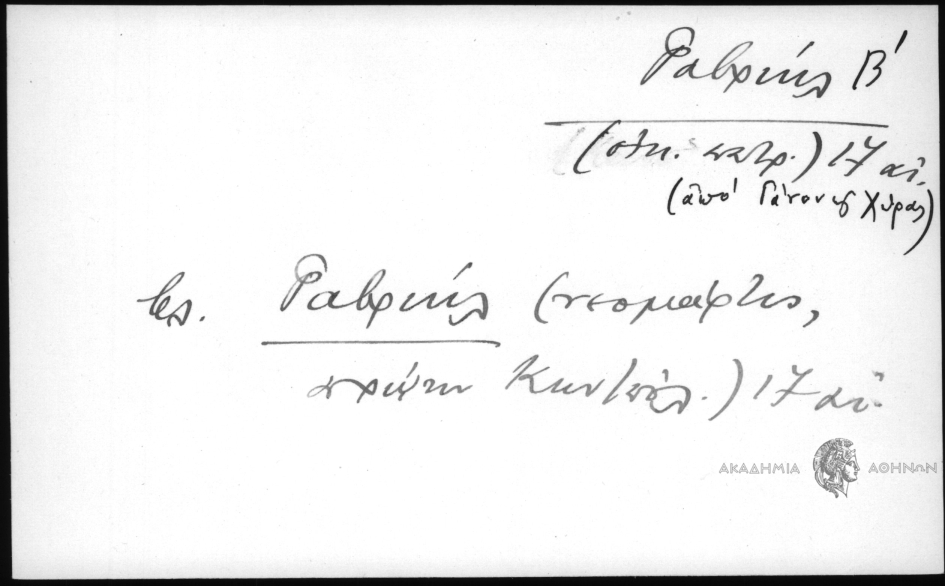 Γαβριήλ Β΄
(οἰκ. πατρ.) 17 αἰ.
(ἀπό Γάνου καί Χώρας)
βλ. Γαβριήλ (νεομάρτυς,
πρώην Κων/πόλ.) 17 αἰ.
ΑΚΑΔΗΜΙΑ ΑΘΗΝΩΝ